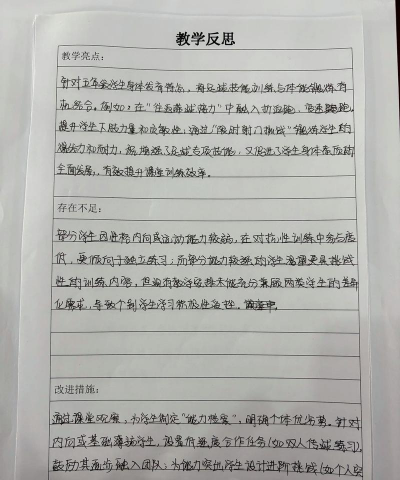 教学反思
教学亮点：
针对五年级学生身体发育特点，将足球技能训练与体能锻炼有
机结合。例如：在“往返运球接力”中融入
提升学生下肢力量和灵敏性；通过“限时射门挑战”锻炼学生的
爆发力和耐力，既增强了足球专项技能，又促进了学生身体素质的
全面发展，有效提升课堂训练效率。
存在不足：
部分学生因性格内向或运动能力较弱，在对抗性训练中参与度
低，更倾向于独立练习；而部分能力较强的学生渴望更具挑战
性的训练内容，但现有教学安排未能充分兼顾两类学生的差异
化需求，导致个别学生学习积极性受挫。
改进措施：
通过课堂观察，为学生制定“能力档案”，明确个体优劣势。针对
内向或基础薄弱学生，设置低难度合作任务（如双人传球练习），
鼓励其逐步融入团队；为能力突出学生设计进阶挑战（如个人突